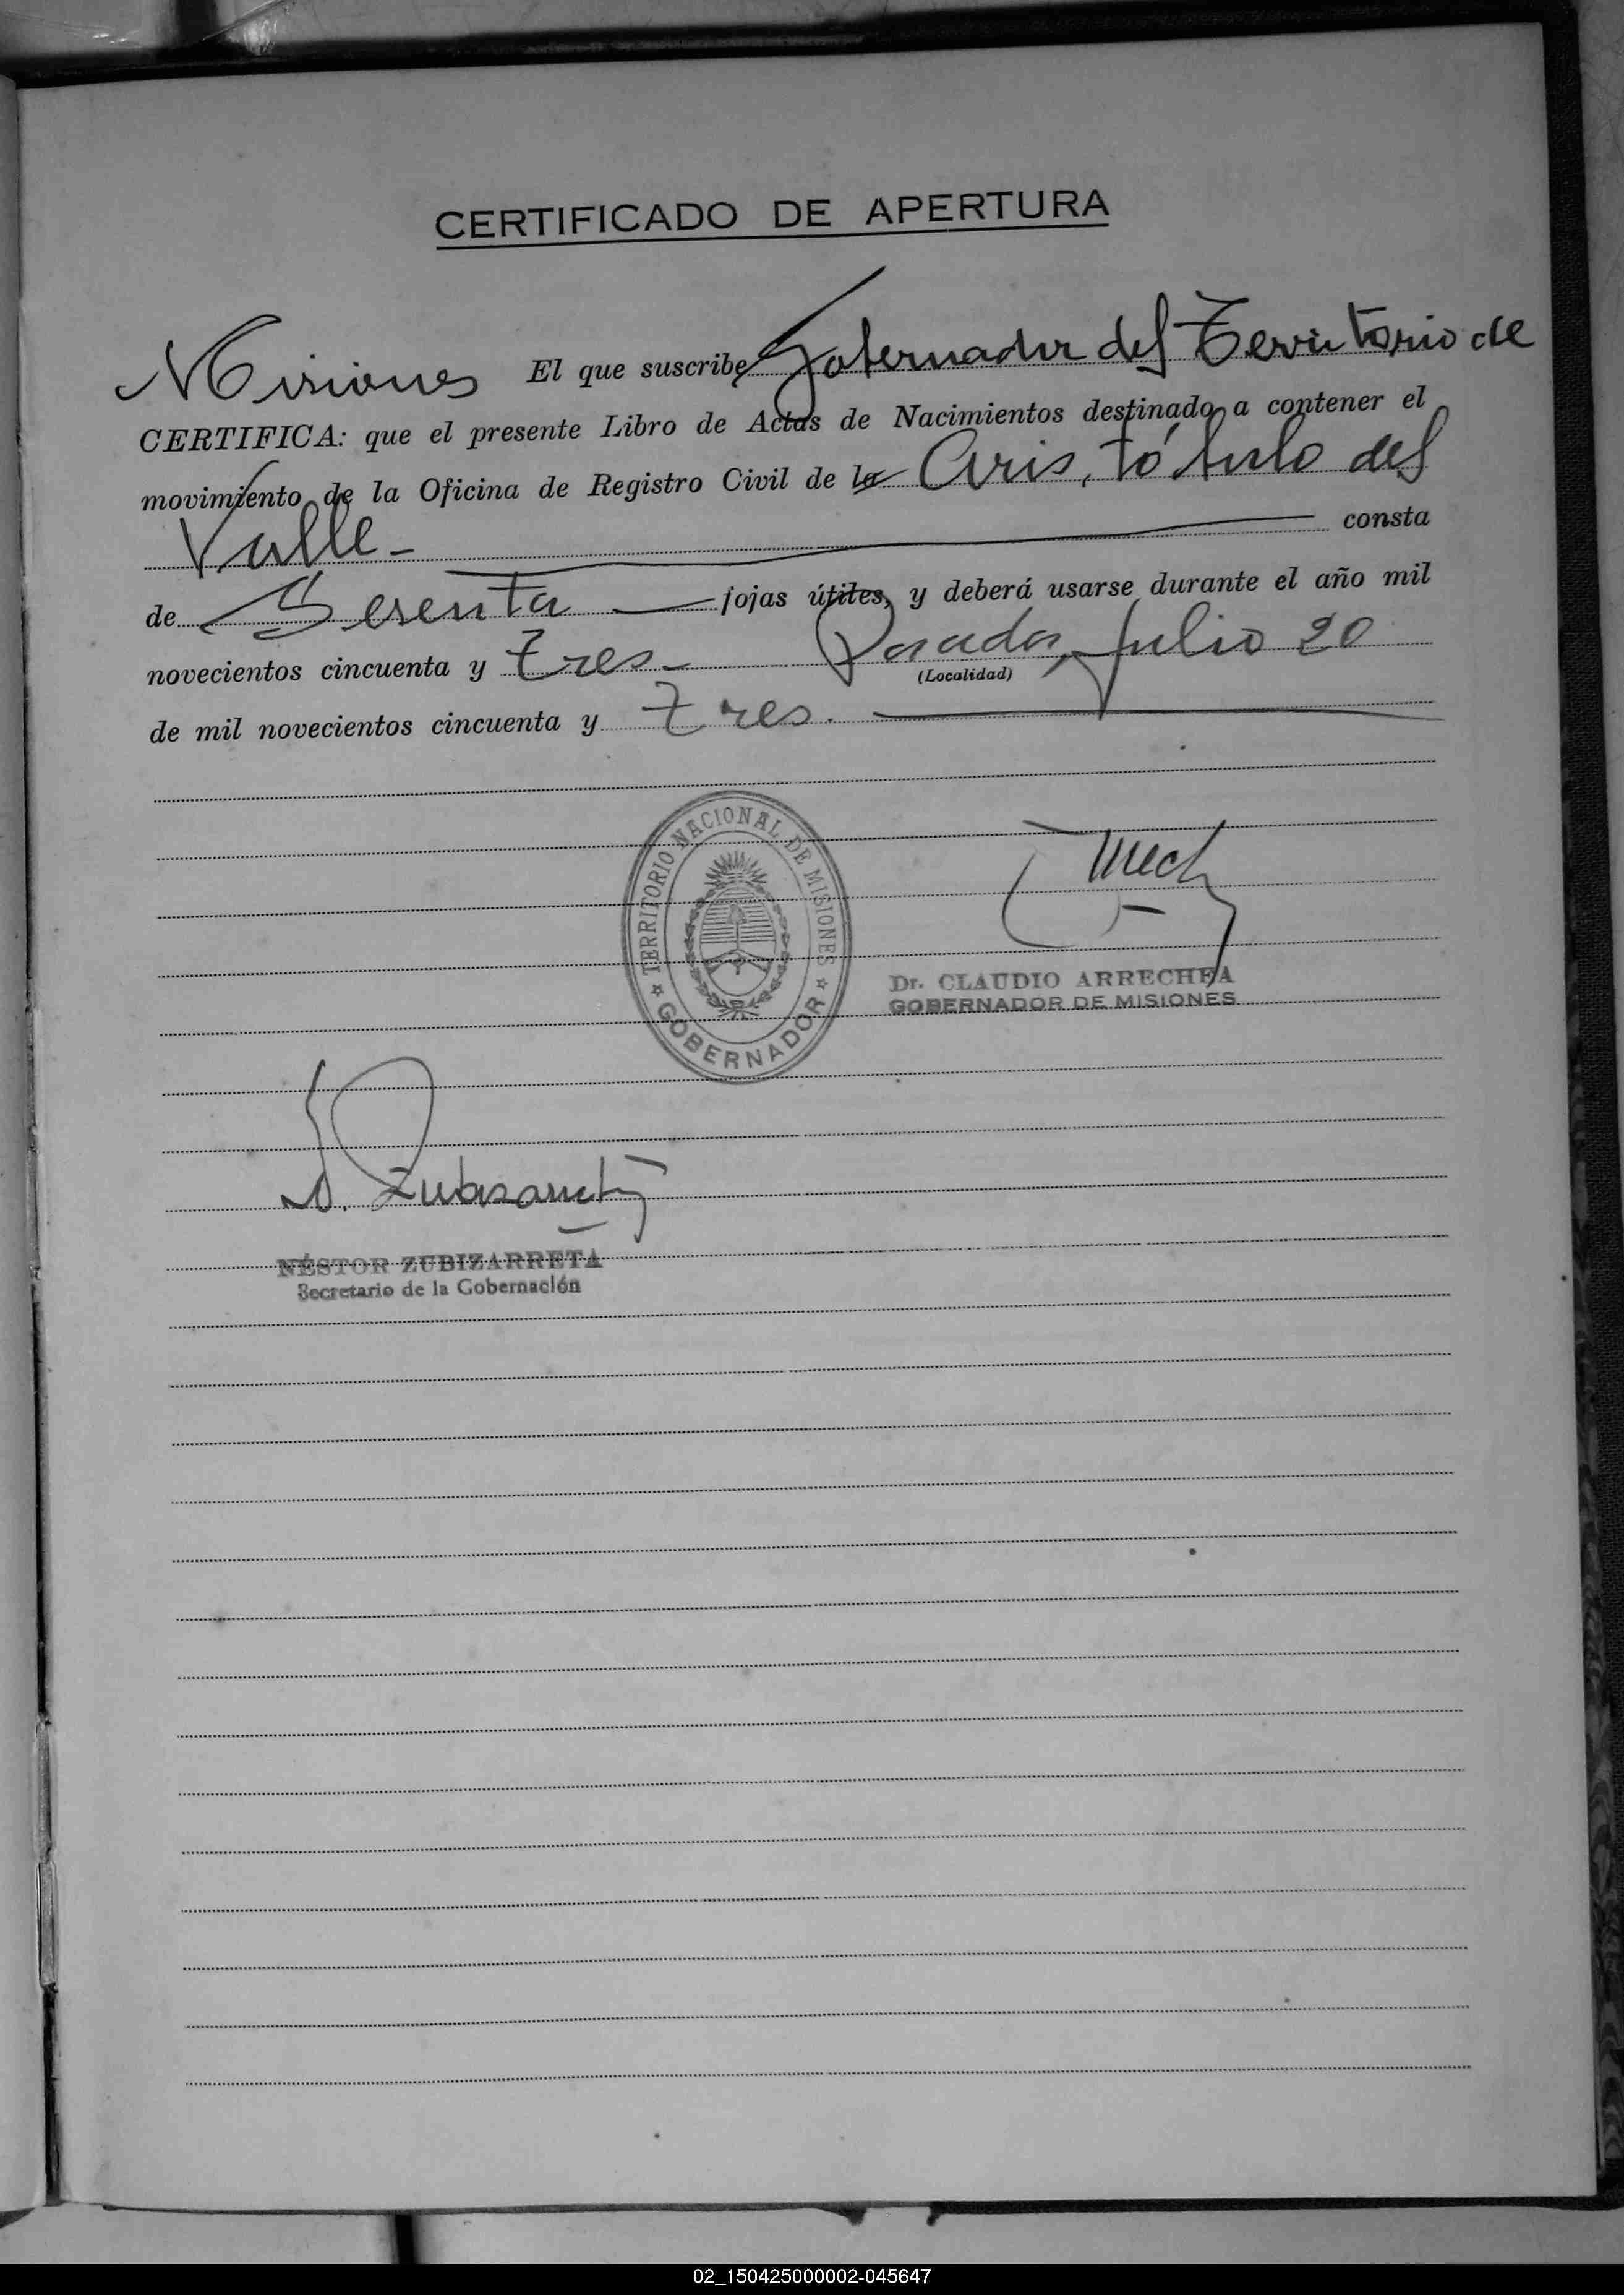 CERTIFICADO DE APERTURA
El que suscribe Gobernador del Territorio de
Misiones
CERTIFICA: que el presente Libro de Actas de Nacimientos destinado a contener el
movimiento de la Oficina de Registro Civil de la Aristóbulo del
Valle - consta
de Sesenta fojas útiles, y deberá usarse durante el año mil
novecientos cincuenta y tres - Posadas, Julio 20
(Localidad)
de mil novecientos cincuenta y tres.
TERRITORIO NACIONAL DE MISIONES
GOBERNADOR
Dr. CLAUDIO ARRECHEA
GOBERNADOR DE MISIONES
N. Zubizarreta
NÉSTOR ZUBIZARRETA
Secretario de la Gobernación
02_150425000002-045647